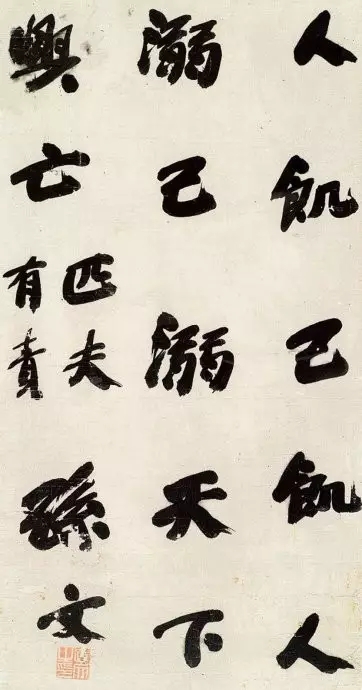 人飢己飢人
溺己溺天下
興亡匹夫有責孫文